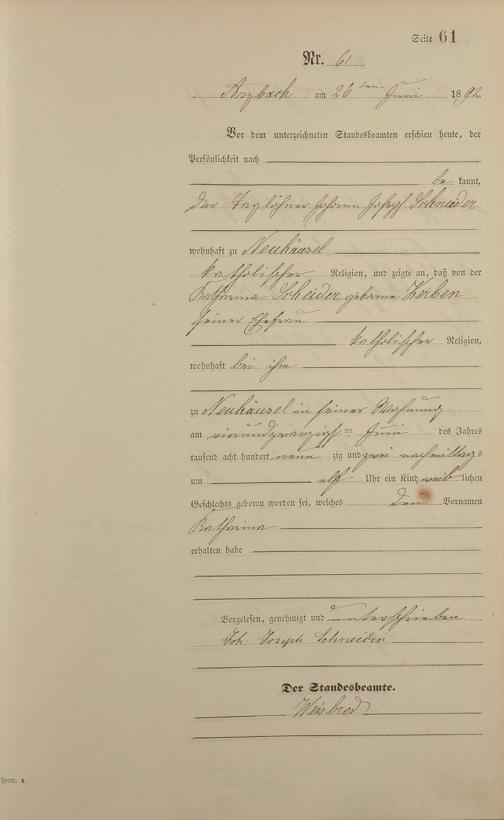 Seite 61
Nr. 61
Arzbach am 26ten Juni 1892
Vor dem unterzeichneten Standesbeamten erschien heute, der
Persönlichkeit nach
be kannt,
der Taglöhner Johann Joseph Schneider
wohnhaft zu Neuhäusel
katholischer Religion, und zeigte an, daß von der
Katharina Scheider geborene Herben
seiner Ehefrau
katholischer Religion,
wohnhaft bei ihm
zu Neuhäusel in seiner Wohnung
am einundzwanzigsten Juni des Jahres
tausend acht hundert neun zig und zwei nachmittags
um elf Uhr ein Kind weib lichen
Geschlechts geboren worden sei, welches den Vornamen
Katharina
erhalten habe
Vorgelesen, genehmigt und unterschrieben
Joh. Joseph Schneider
Der Standesbeamte.
Weisbrod
Form. A.